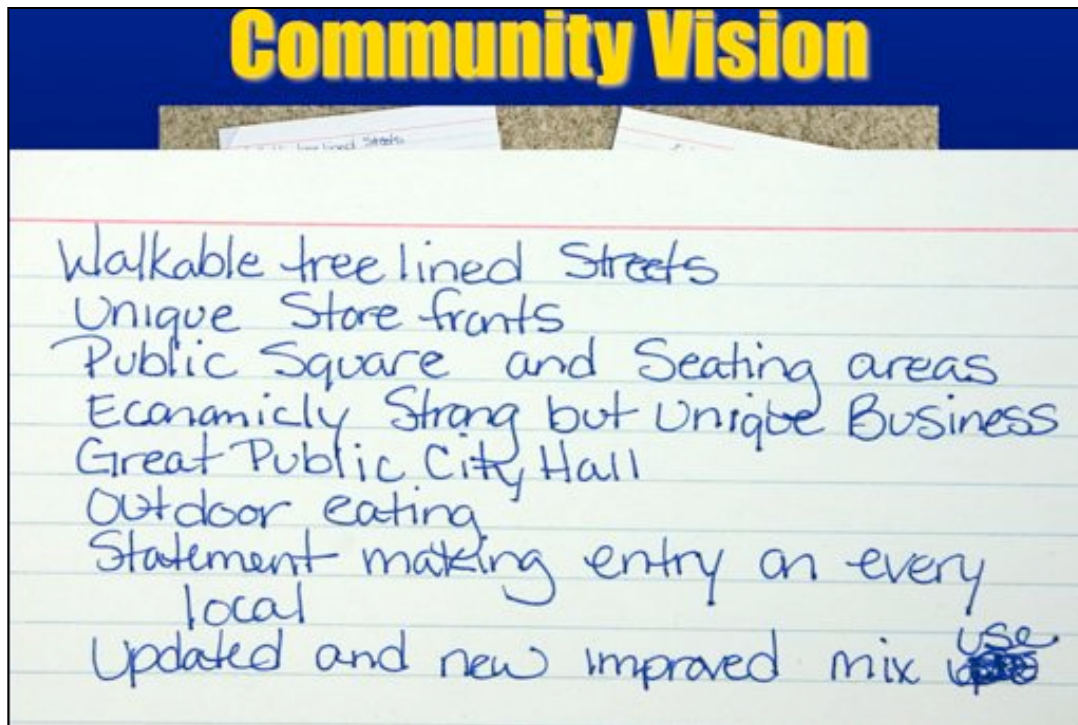 Community Vision
tree lined Streets
Walkable tree lined Streets
Unique Store fronts
Public Square and Seating areas
Economicly Strong but Unique Business
Great Public City Hall
Outdoor eating
Statement making entry on every
local
Updated and new improved mix use